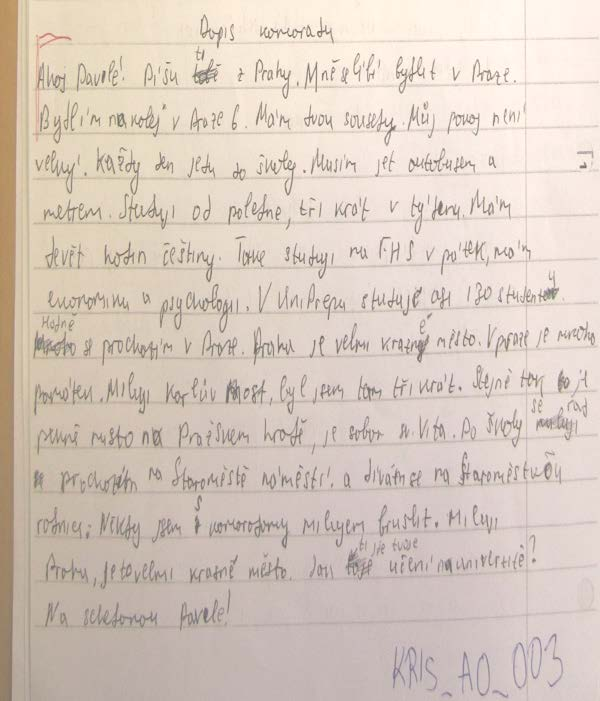 Dopis komorady
Ahoj Pavele! Píšu ti z Prahy. Mně se líbí bydlit v Praze.
Bydlím na koleji v Praze 6. Mám dvou sousedy. Můj pokoj není
velký. Každy den jedu do školy. Musím jet autobusem a
metrem. Studuji od poledne, tři krát v týdenu. Mám
devět hodin češtiny. Take studuji na FHS v pátek, mám
ekonomiku a psychologii. V UniPrepu studuje asi 130 studentů.
Hodně se prochazím v Praze. Praha je velmi krásné město. V praze je mnoho
pamatek. Miluji Karlův most, byl jsem tam tři krát. Stejně tak je
pěkné misto na Pražskem hradě, je sobor sv. Vita. Po školy se rad
prochazím na Staroměstě náměstí. a divám se na Staroměstskou
rotnici. Někdy jsem s komoradamy milujem bruslit. Miluji
Prahu, je to velmi krasné město. Jak ti jde tvoje učéni na univertitě?
Na scledanou Pavele!
KRIS_A0_003